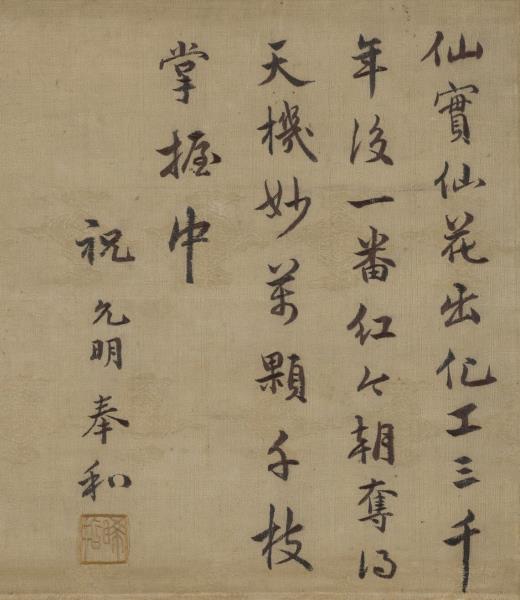 仙實仙花出化工三千
年後一番紅今朝奪得
天機妙萬顆千枝
掌握中
祝允明奉和